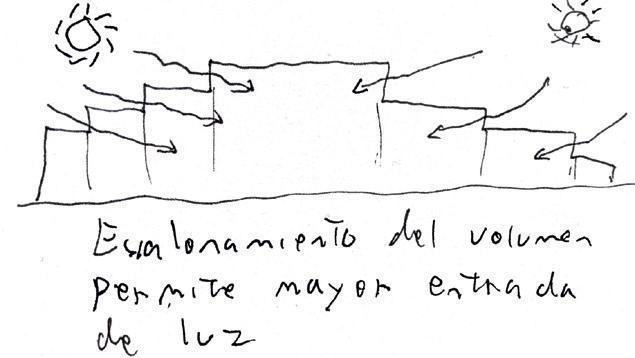 Escalonamiento del volumen
permite mayor entrada
de luz